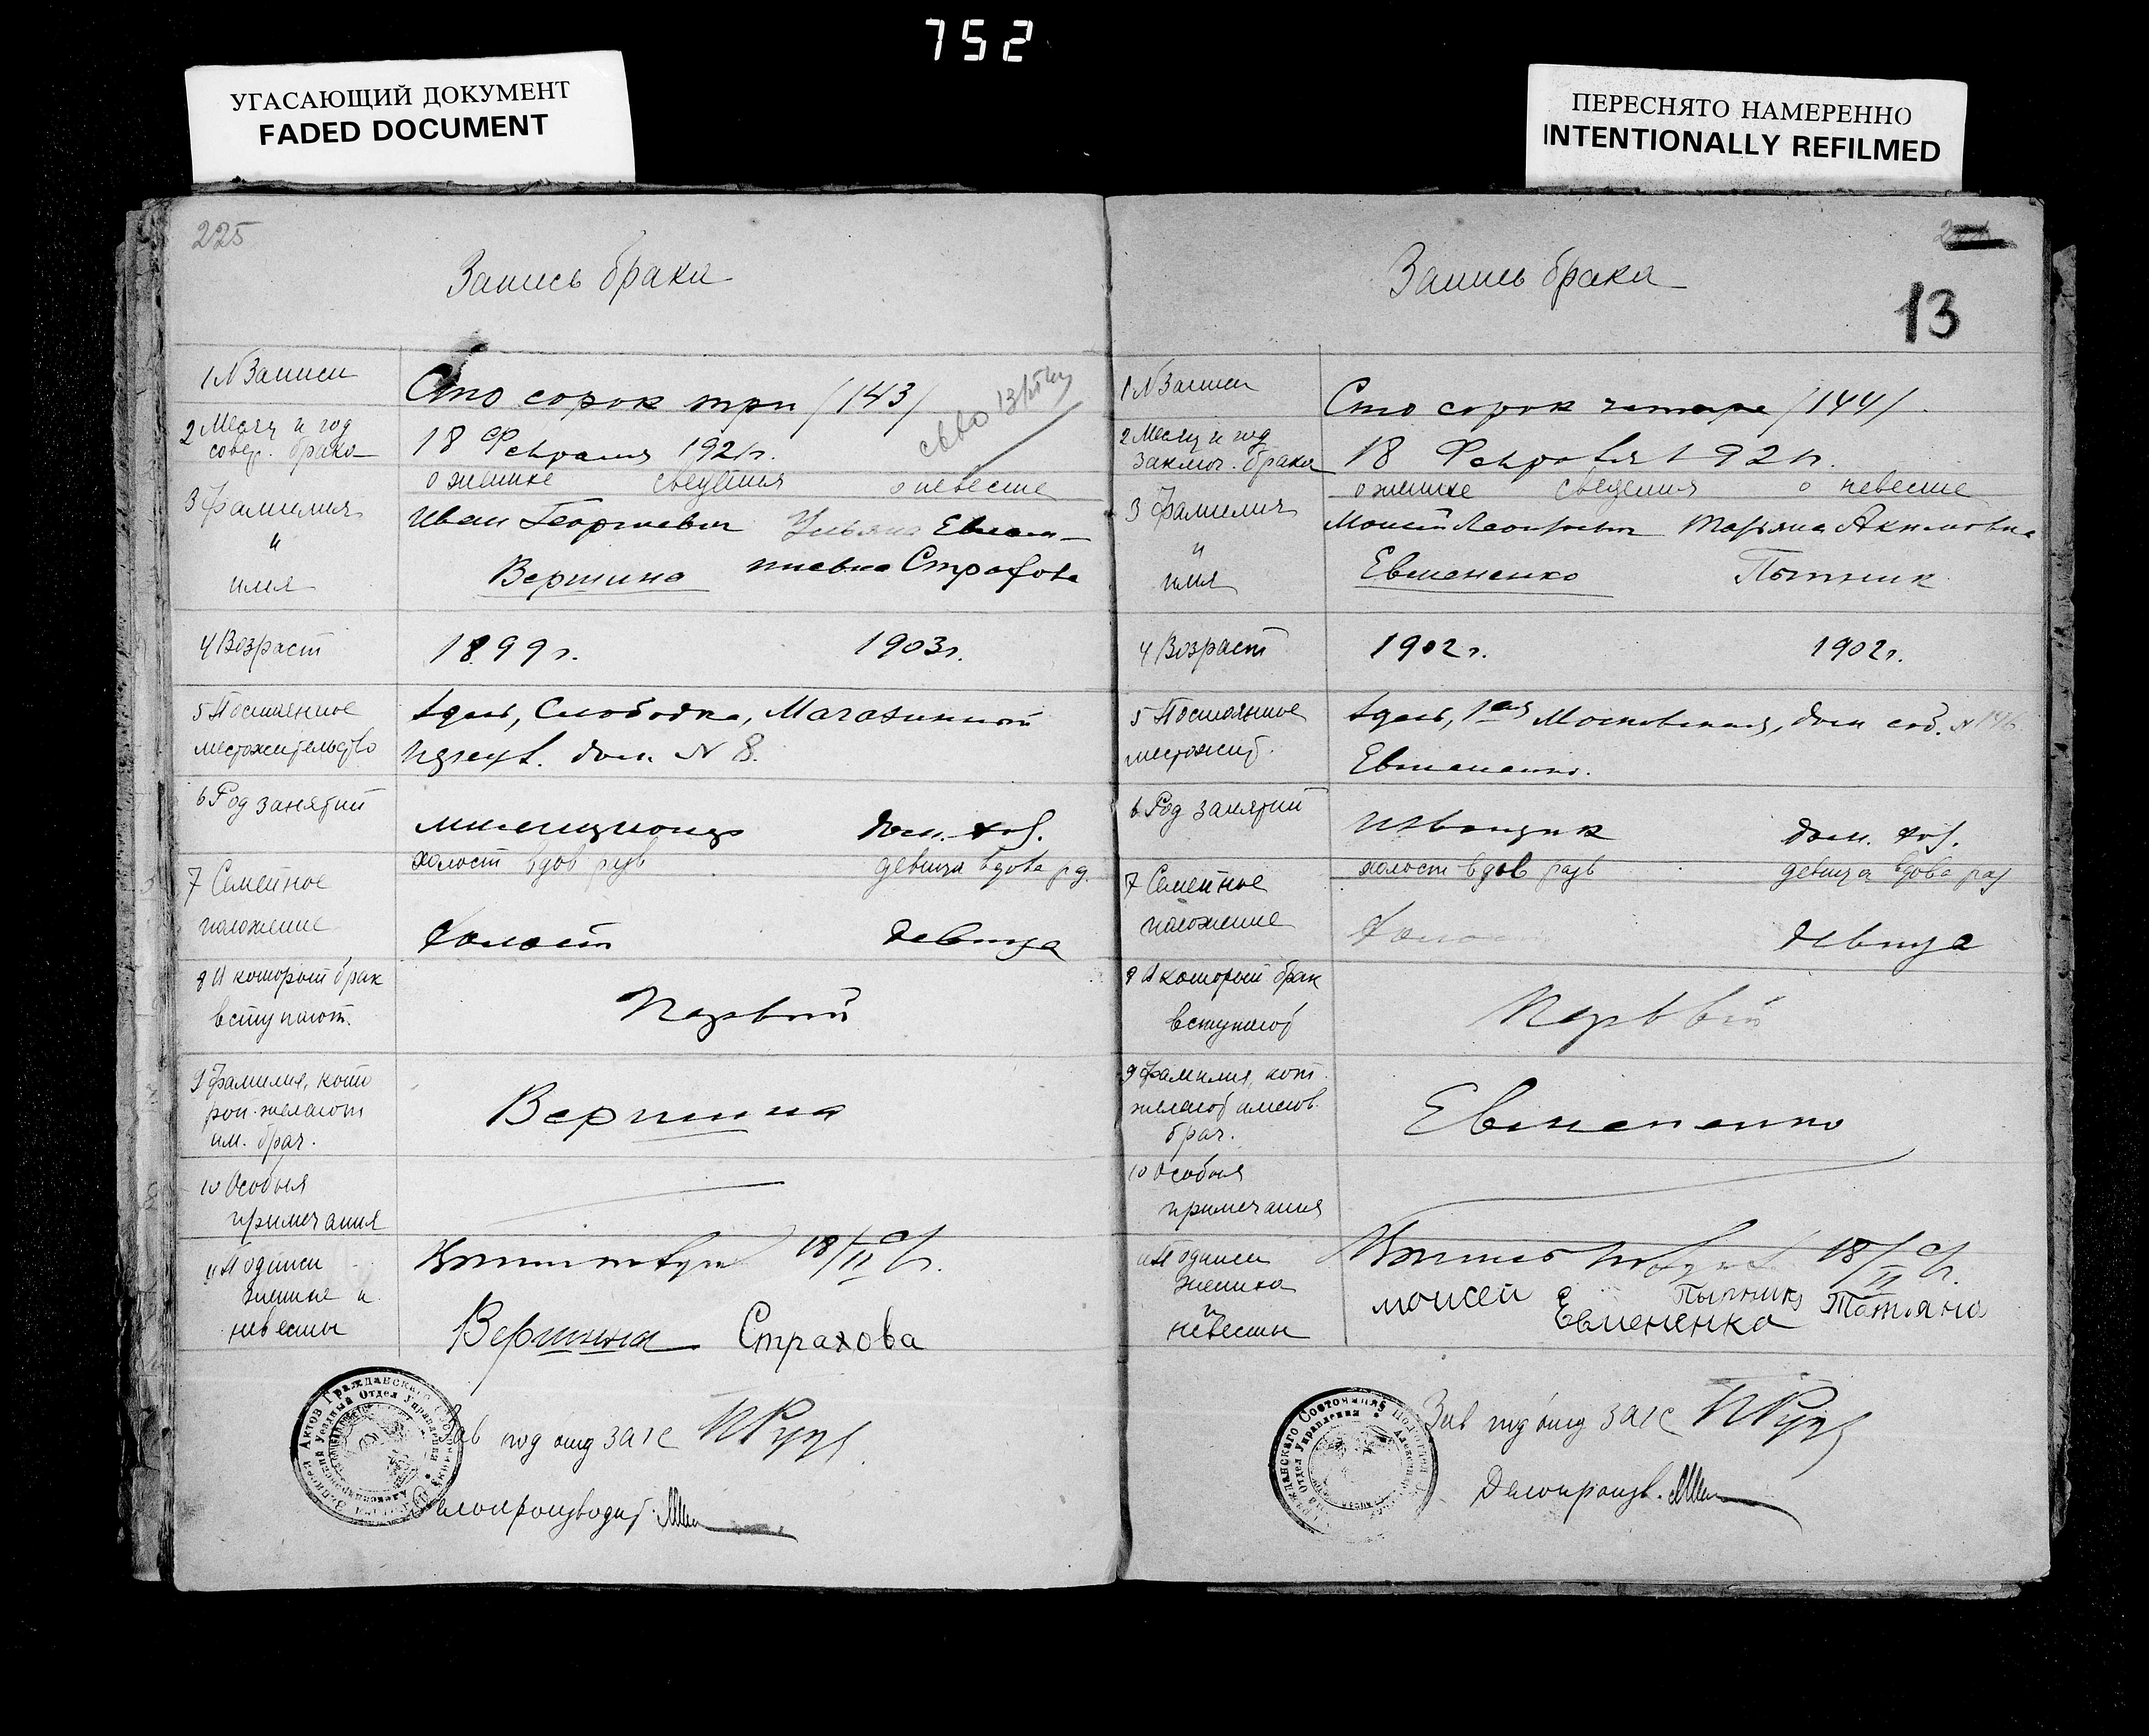 752
УГАСАЮЩИЙ ДОКУМЕНТ
FADED DOCUMENT
ПЕРЕСНЯТО НАМЕРЕННО
INTENTIONALLY REFILMED
225
Запись брака
1 N Записи
Сто сорок три /143/
2 Месяц и год
совер. брака
18 Февраля 1921г.
о женихе сведения о невесте
3 Фамилия
и
имя
Иван Георгиевич Ульяна Евлам-
Вершина пиевна Страхова
4 Возраст
1899г. 1903г.
5 Постоянное
местожительство
Адель, Слободка, Магазинный
дом N 8.
6 Род занятий
милиционер дом. хоз.
холост вдов разв девица вдова рзд.
7 Семейное
положение
Холост Девица
8 В который брак
вступают.
Первый
9 Фамилия, кото
рой желают
им. брач.
Вершина
10 Особыя
примечания
11 Подписи
жениха и
невесты
18/II
Вершина Страхова
Зав под отд ЗАГС
Делопроизводит.
13
Запись брака
1 N Записи
Сто сорок четыре /144/.
2 Месяц и год
заключ. брака
18 Февраля 1921г.
о женихе сведения о невесте
3 Фамилия
и
имя
Моисей Татьяна Акимовна
Евмененко Пытник
4 Возраст
1902г. 1902г.
5 Постоянное
местожит.
1ая Московская, дом соб. N
Евмененко.
6 Род занятий
Извощик дом. хоз.
холост вдов разв девица вдова раз
7 Семейное
положение
Холост Девица
8 В который брак
вступают
Первый
9 Фамилия, кот.
желают именов.
брач.
Евмененко
10 Особыя
примечания
11 Подписи
жениха
и
невесты
18/II
моисей Евмененко Татьяна
Зав под отд ЗАГС
Делопроизв.